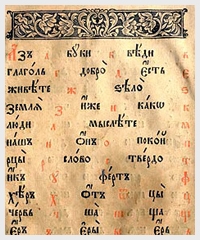 Азъ буки вѣди
глаголь добро єсть
живѣте ѕѣло
Земля иже како
люди мыслѣте
нашъ онъ покой
рцы слово твердо
икъ фертъ
хѣръ отъ цы
червь ша ща
ѥръ ѥры ѥрь